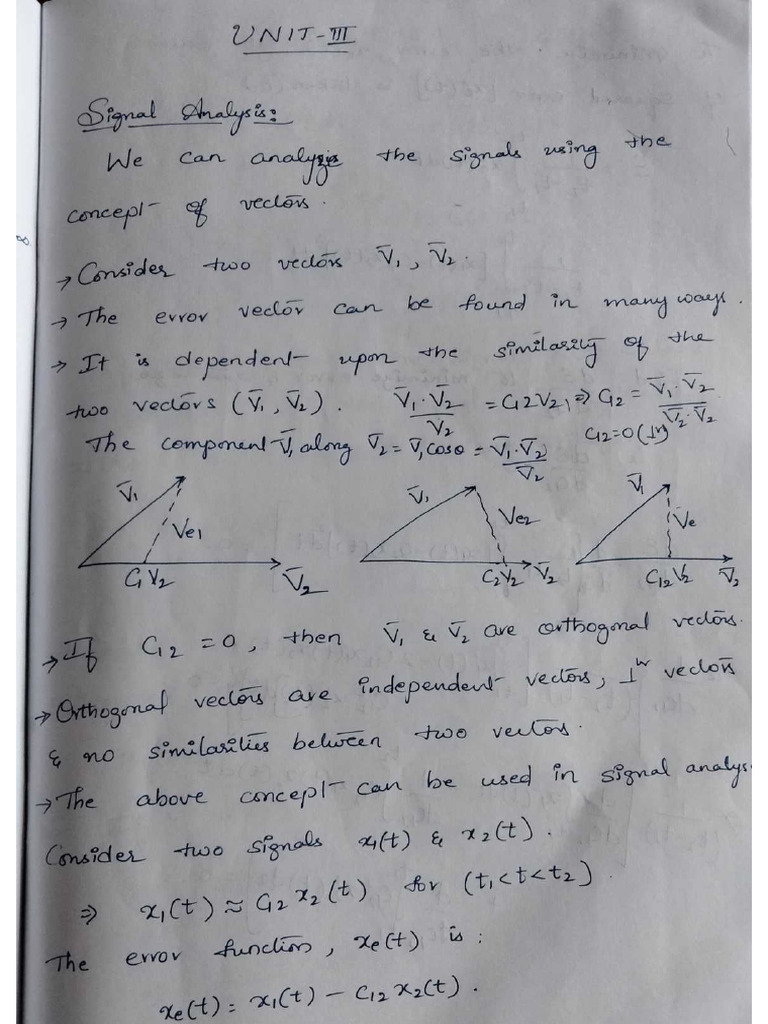 UNIT-III
Signal Analysis:
We can analyze the signals using the
concept of vectors.
→ Consider two vectors V̄₁, V̄₂.
→ The error vector can be found in many ways.
→ It is dependent upon the similarity of the
two vectors (V̄₁, V̄₂). V̄₁·V̄₂/V₂ = C₁₂V₂ ⇒ C₁₂ = V̄₁·V̄₂/V̄₂·V̄₂
The component V̄₁ along V̄₂ = V̄₁ cosθ = V̄₁·V̄₂/V̄₂ C₁₂=0 (⊥ʳ)
V̄₁ V̄₁ V̄₁
Ve₁ Ve₂ V̄e
C₁V₂ V̄₂ C₂V₂ V̄₂ C₁₂V₂ V̄₂
→ If C₁₂ = 0, then V̄₁ & V̄₂ are orthogonal vectors.
→ Orthogonal vectors are independent vectors, ⊥ʳ vectors
& no similarities between two vectors.
→ The above concept can be used in signal analys
Consider two signals x₁(t) & x₂(t).
⇒ x₁(t) ≈ C₁₂ x₂(t) for (t₁<t<t₂).
The error function, xₑ(t) is:
xₑ(t) = x₁(t) − C₁₂ x₂(t).